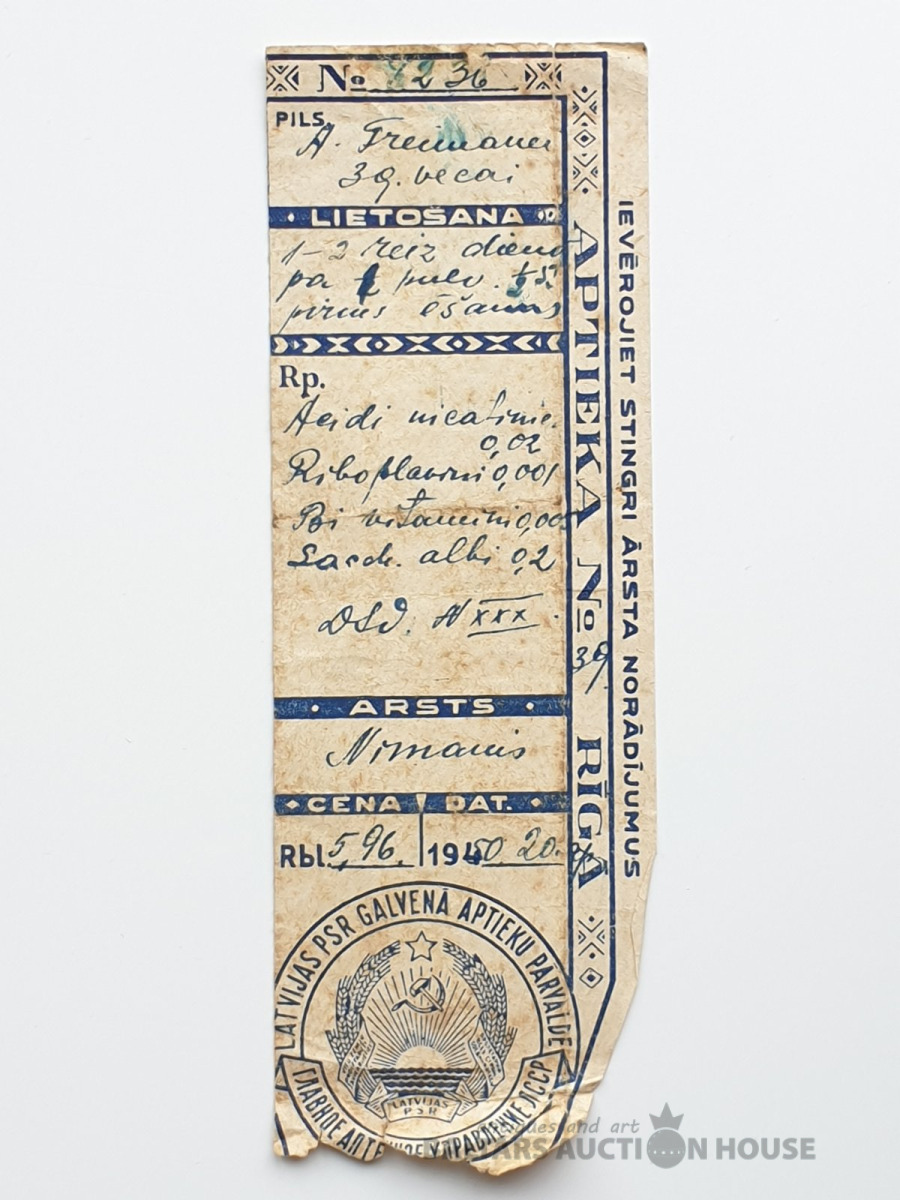 No 4236
PILS.
A. Treimane
39. vecai
LIETOŠANA
1-2 reiz dienā
pa 1 pulv.
pirms ēšanas
Rp.
Acidi nicotinic.
0,02
Riboflavini 0,001
Bi vitamini 0,005
Sacch. albi 0,2
DSD. N XXX.
ARSTS
Nimanis
CENA DAT.
Rbl. 5,96. 1950. 20.
APTIEKA No 39. RĪGĀ
IEVĒROJIET STINGRI ĀRSTA NORĀDĪJUMUS
LATVIJAS PSR GALVENĀ APTIEKU PĀRVALDE
LATVIJAS
PSR
ГЛАВНОЕ УПРАВЛЕНИЕ ЛССР
and art
AUCTION HOUSE